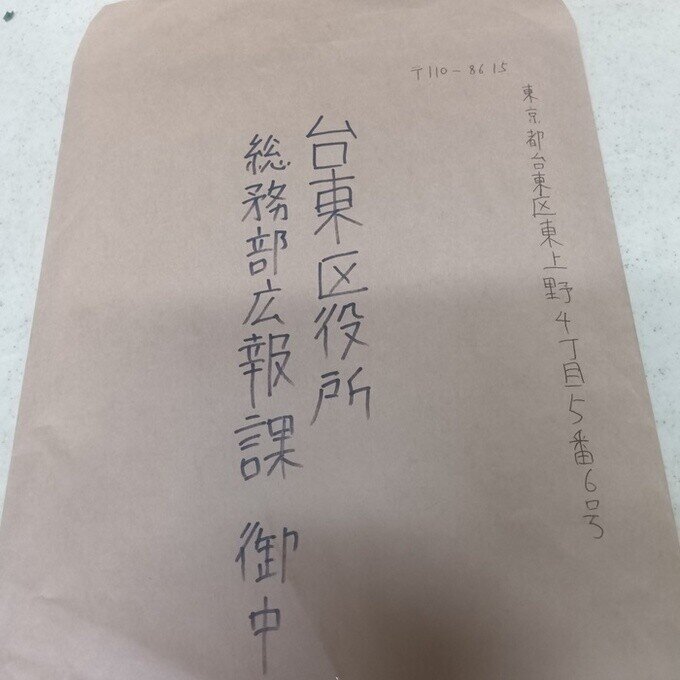 〒110-8615
東京都台東区東上野4丁目5番6号
台東区役所
総務部広報課 御中